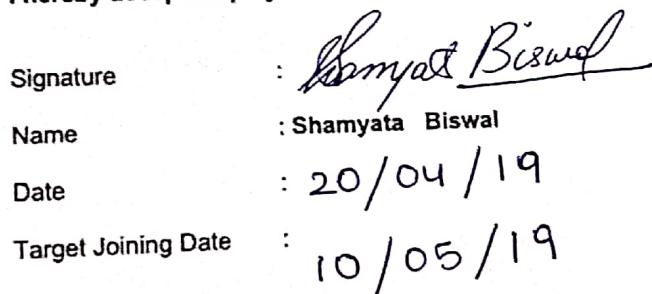 Signature : Shamyata Biswal
Name : Shamyata Biswal
Date : 20/04/19
Target Joining Date : 10/05/19